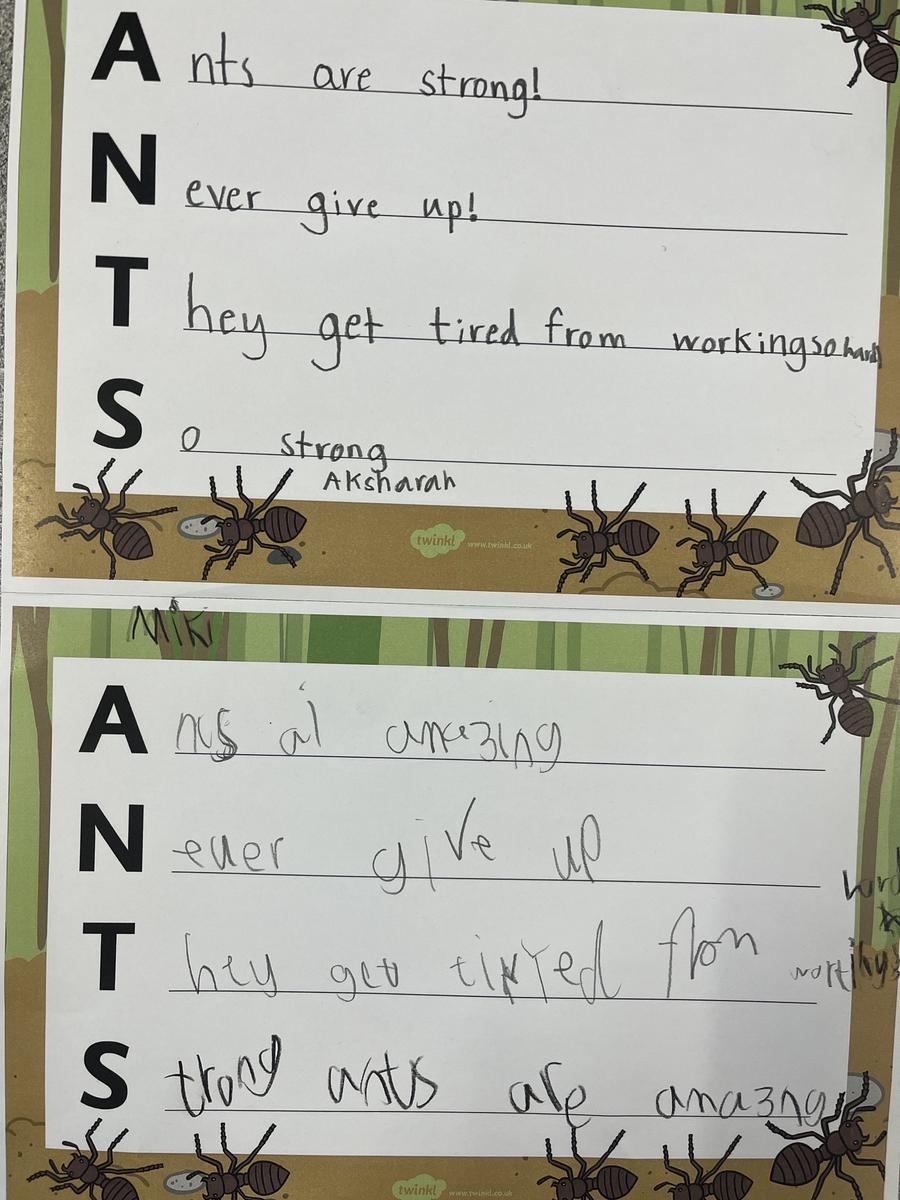 Ants are strong!
Never give up!
They get tired from working so hard
So strong
Aksharah
twinkl www.twinkl.co.uk
Miki
Ants al amazing
Never give up
hard
They get tirred from
Strong ants are amazng
twinkl www.twinkl.co.uk